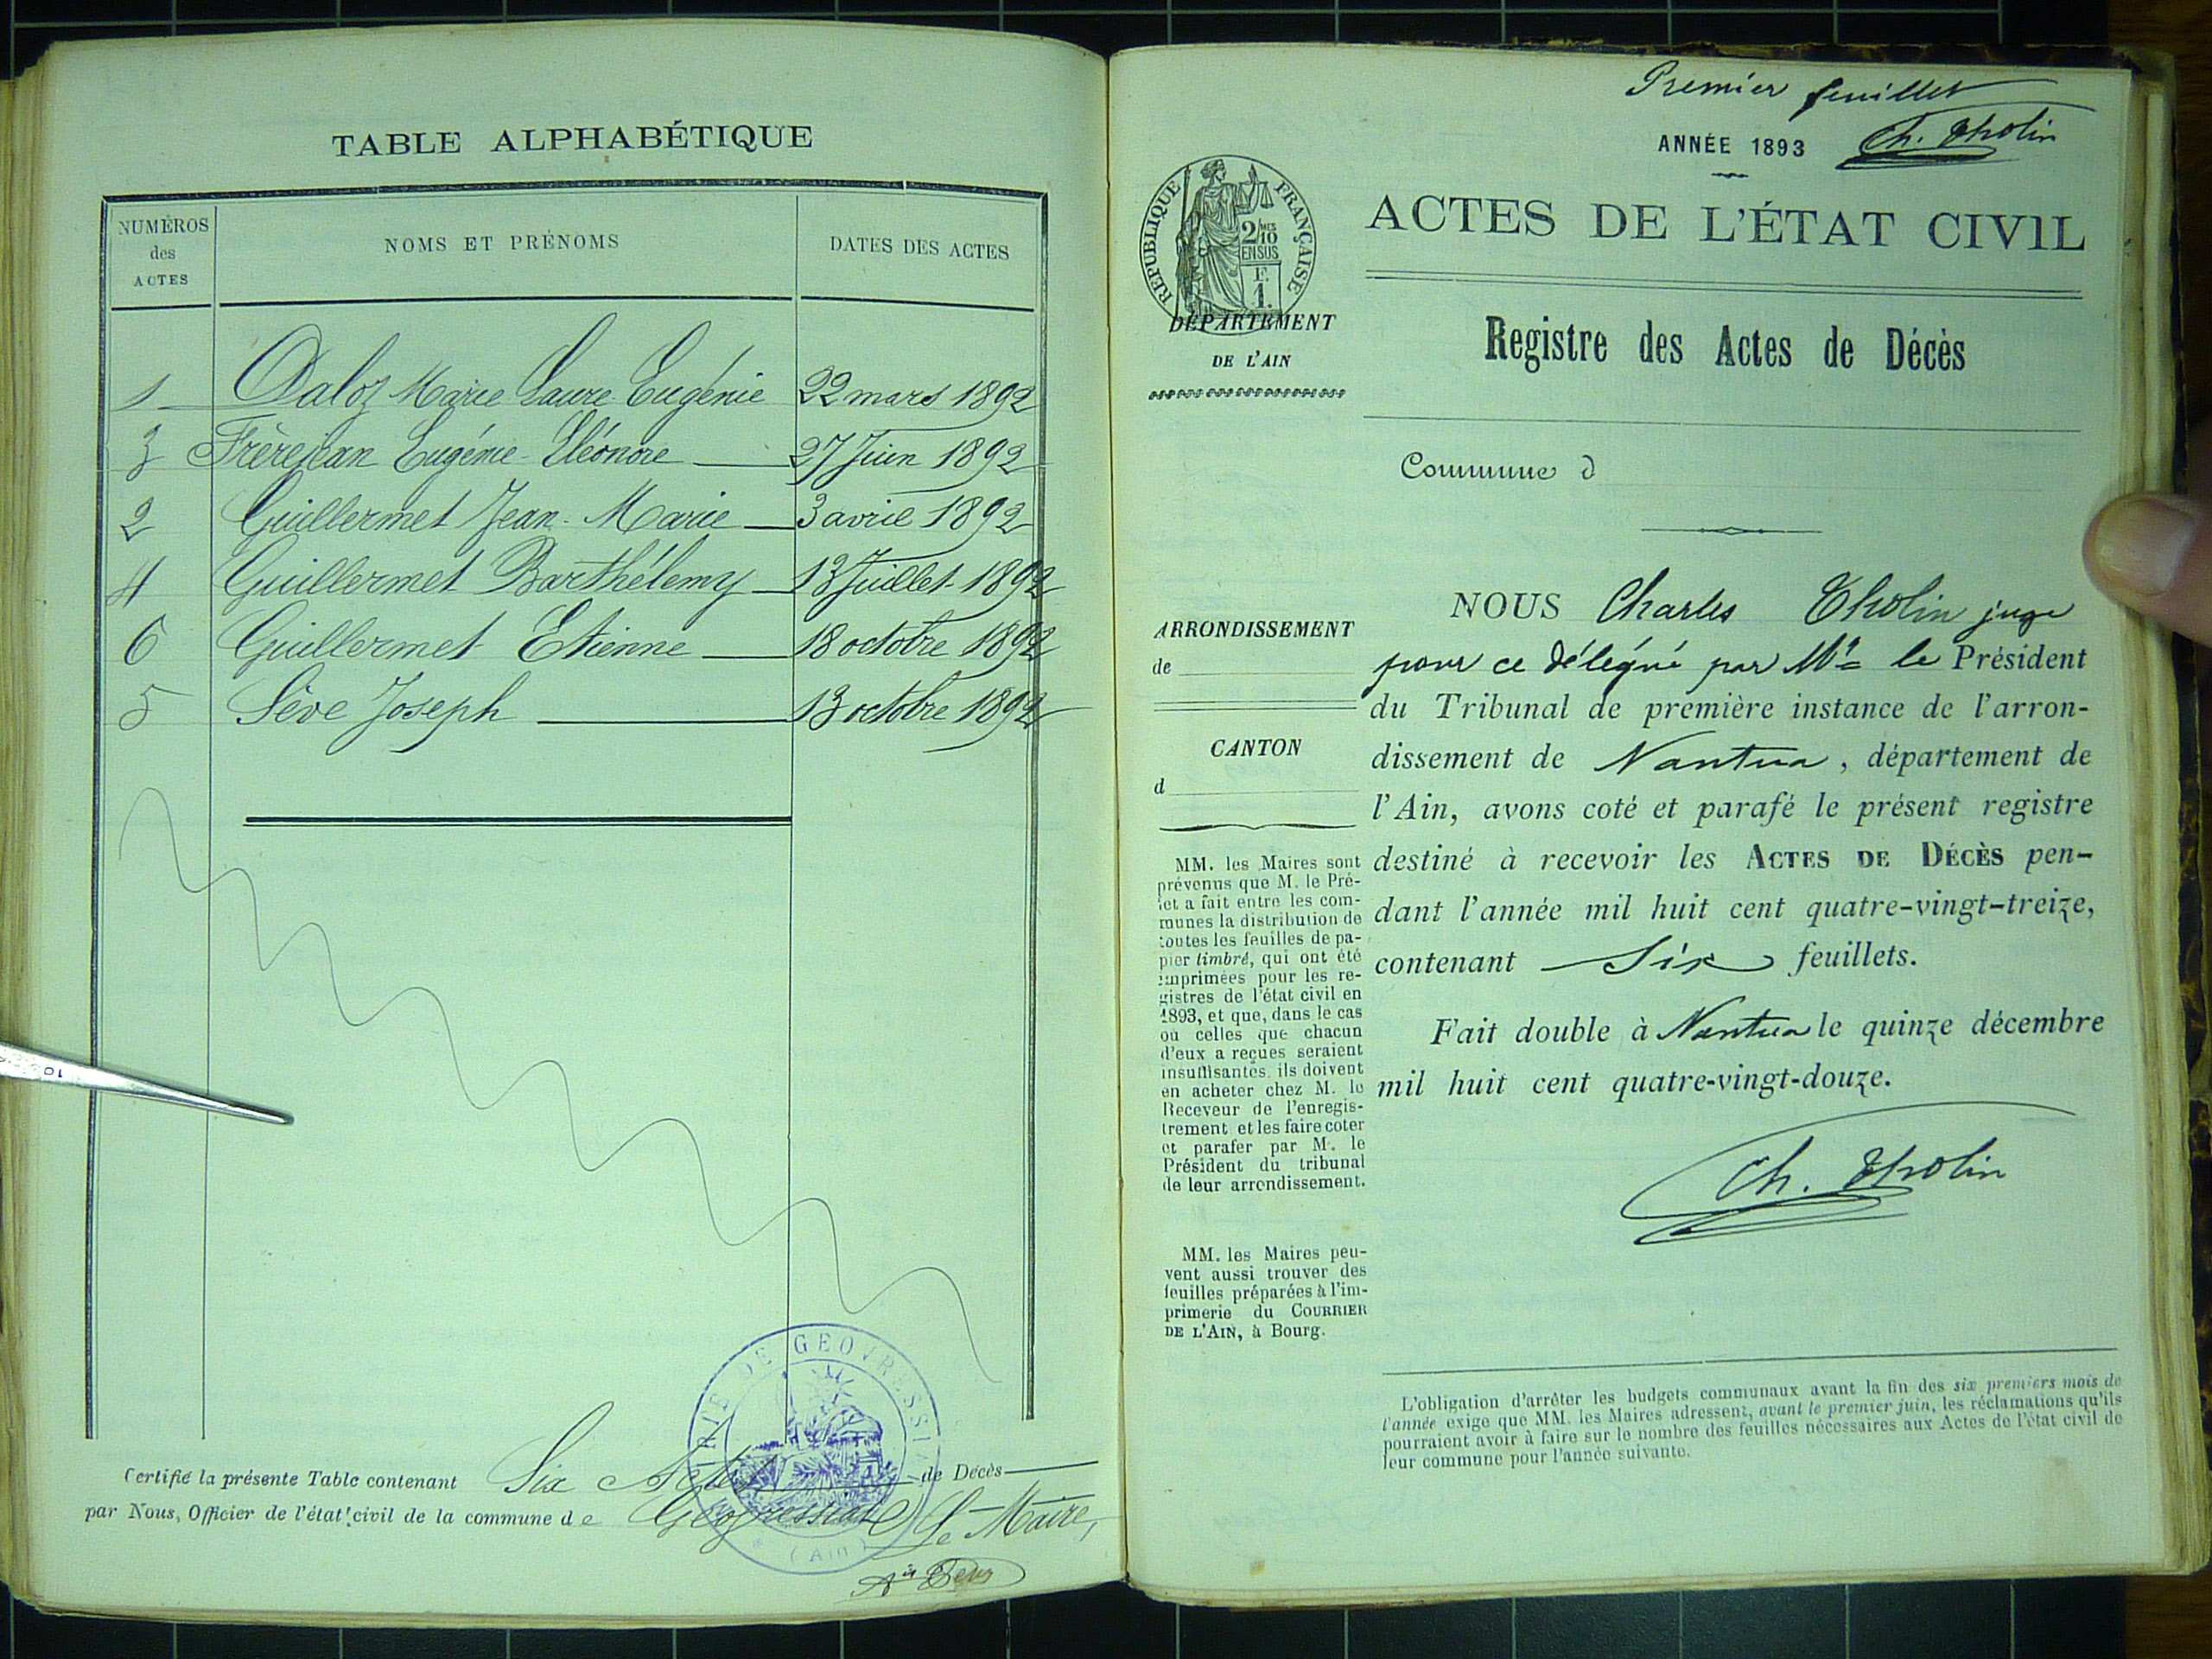 TABLE ALPHABÉTIQUE
NUMÉROS
des
ACTES
NOMS ET PRÉNOMS
DATES DES ACTES
1 Daloz Marie Laure Eugénie 22 mars 1892
3 Frèrejean Eugénie Eléonore 27 Juin 1892
2 Guillermet Jean-Marie 3 avril 1892
4 Guillermet Barthélemy 13 Juillet 1892
6 Guillermet Etienne 18 octobre 1892
5 Sève Joseph 13 octobre 1892
Certifié la présente Table contenant Six Actes de Décès
par Nous, Officier de l'état civil de la commune de Géovressiat Le Maire,
MAIRIE DE GEOVRESSIAT
(Ain)
Premier feuillet
ANNÉE 1893 Ch. Tholin
RÉPUBLIQUE FRANÇAISE
2/10 MES
EN SUS
F.
1.
ACTES DE L'ÉTAT CIVIL
DÉPARTEMENT
DE L'AIN
Registre des Actes de Décès
Commune d
ARRONDISSEMENT
de
CANTON
d
MM. les Maires sont
prévenus que M. le Pré-
fet a fait entre les com-
munes la distribution de
toutes les feuilles de pa-
pier timbré, qui ont été
imprimées pour les re-
gistres de l'état civil en
1893, et que, dans le cas
où celles que chacun
d'eux a reçues seraient
insuffisantes, ils doivent
en acheter chez M. le
Receveur de l'enregis-
trement et les faire coter
et parafer par M. le
Président du tribunal
de leur arrondissement.
MM. les Maires peu-
vent aussi trouver des
feuilles préparées à l'im-
primerie du COURRIER
DE L'AIN, à Bourg.
NOUS Charles Tholin juge
pour ce délégué par Mr le Président
du Tribunal de première instance de l'arron-
dissement de Nantua, département de
l'Ain, avons coté et parafé le présent registre
destiné à recevoir les ACTES DE DÉCÈS pen-
dant l'année mil huit cent quatre-vingt-treize,
contenant Six feuillets.
Fait double à Nantua le quinze décembre
mil huit cent quatre-vingt-douze.
Ch. Tholin
L'obligation d'arrêter les budgets communaux avant la fin des six premiers mois de
l'année exige que MM. les Maires adressent, avant le premier juin, les réclamations qu'ils
pourraient avoir à faire sur le nombre des feuilles nécessaires aux Actes de l'état civil de
leur commune pour l'année suivante.